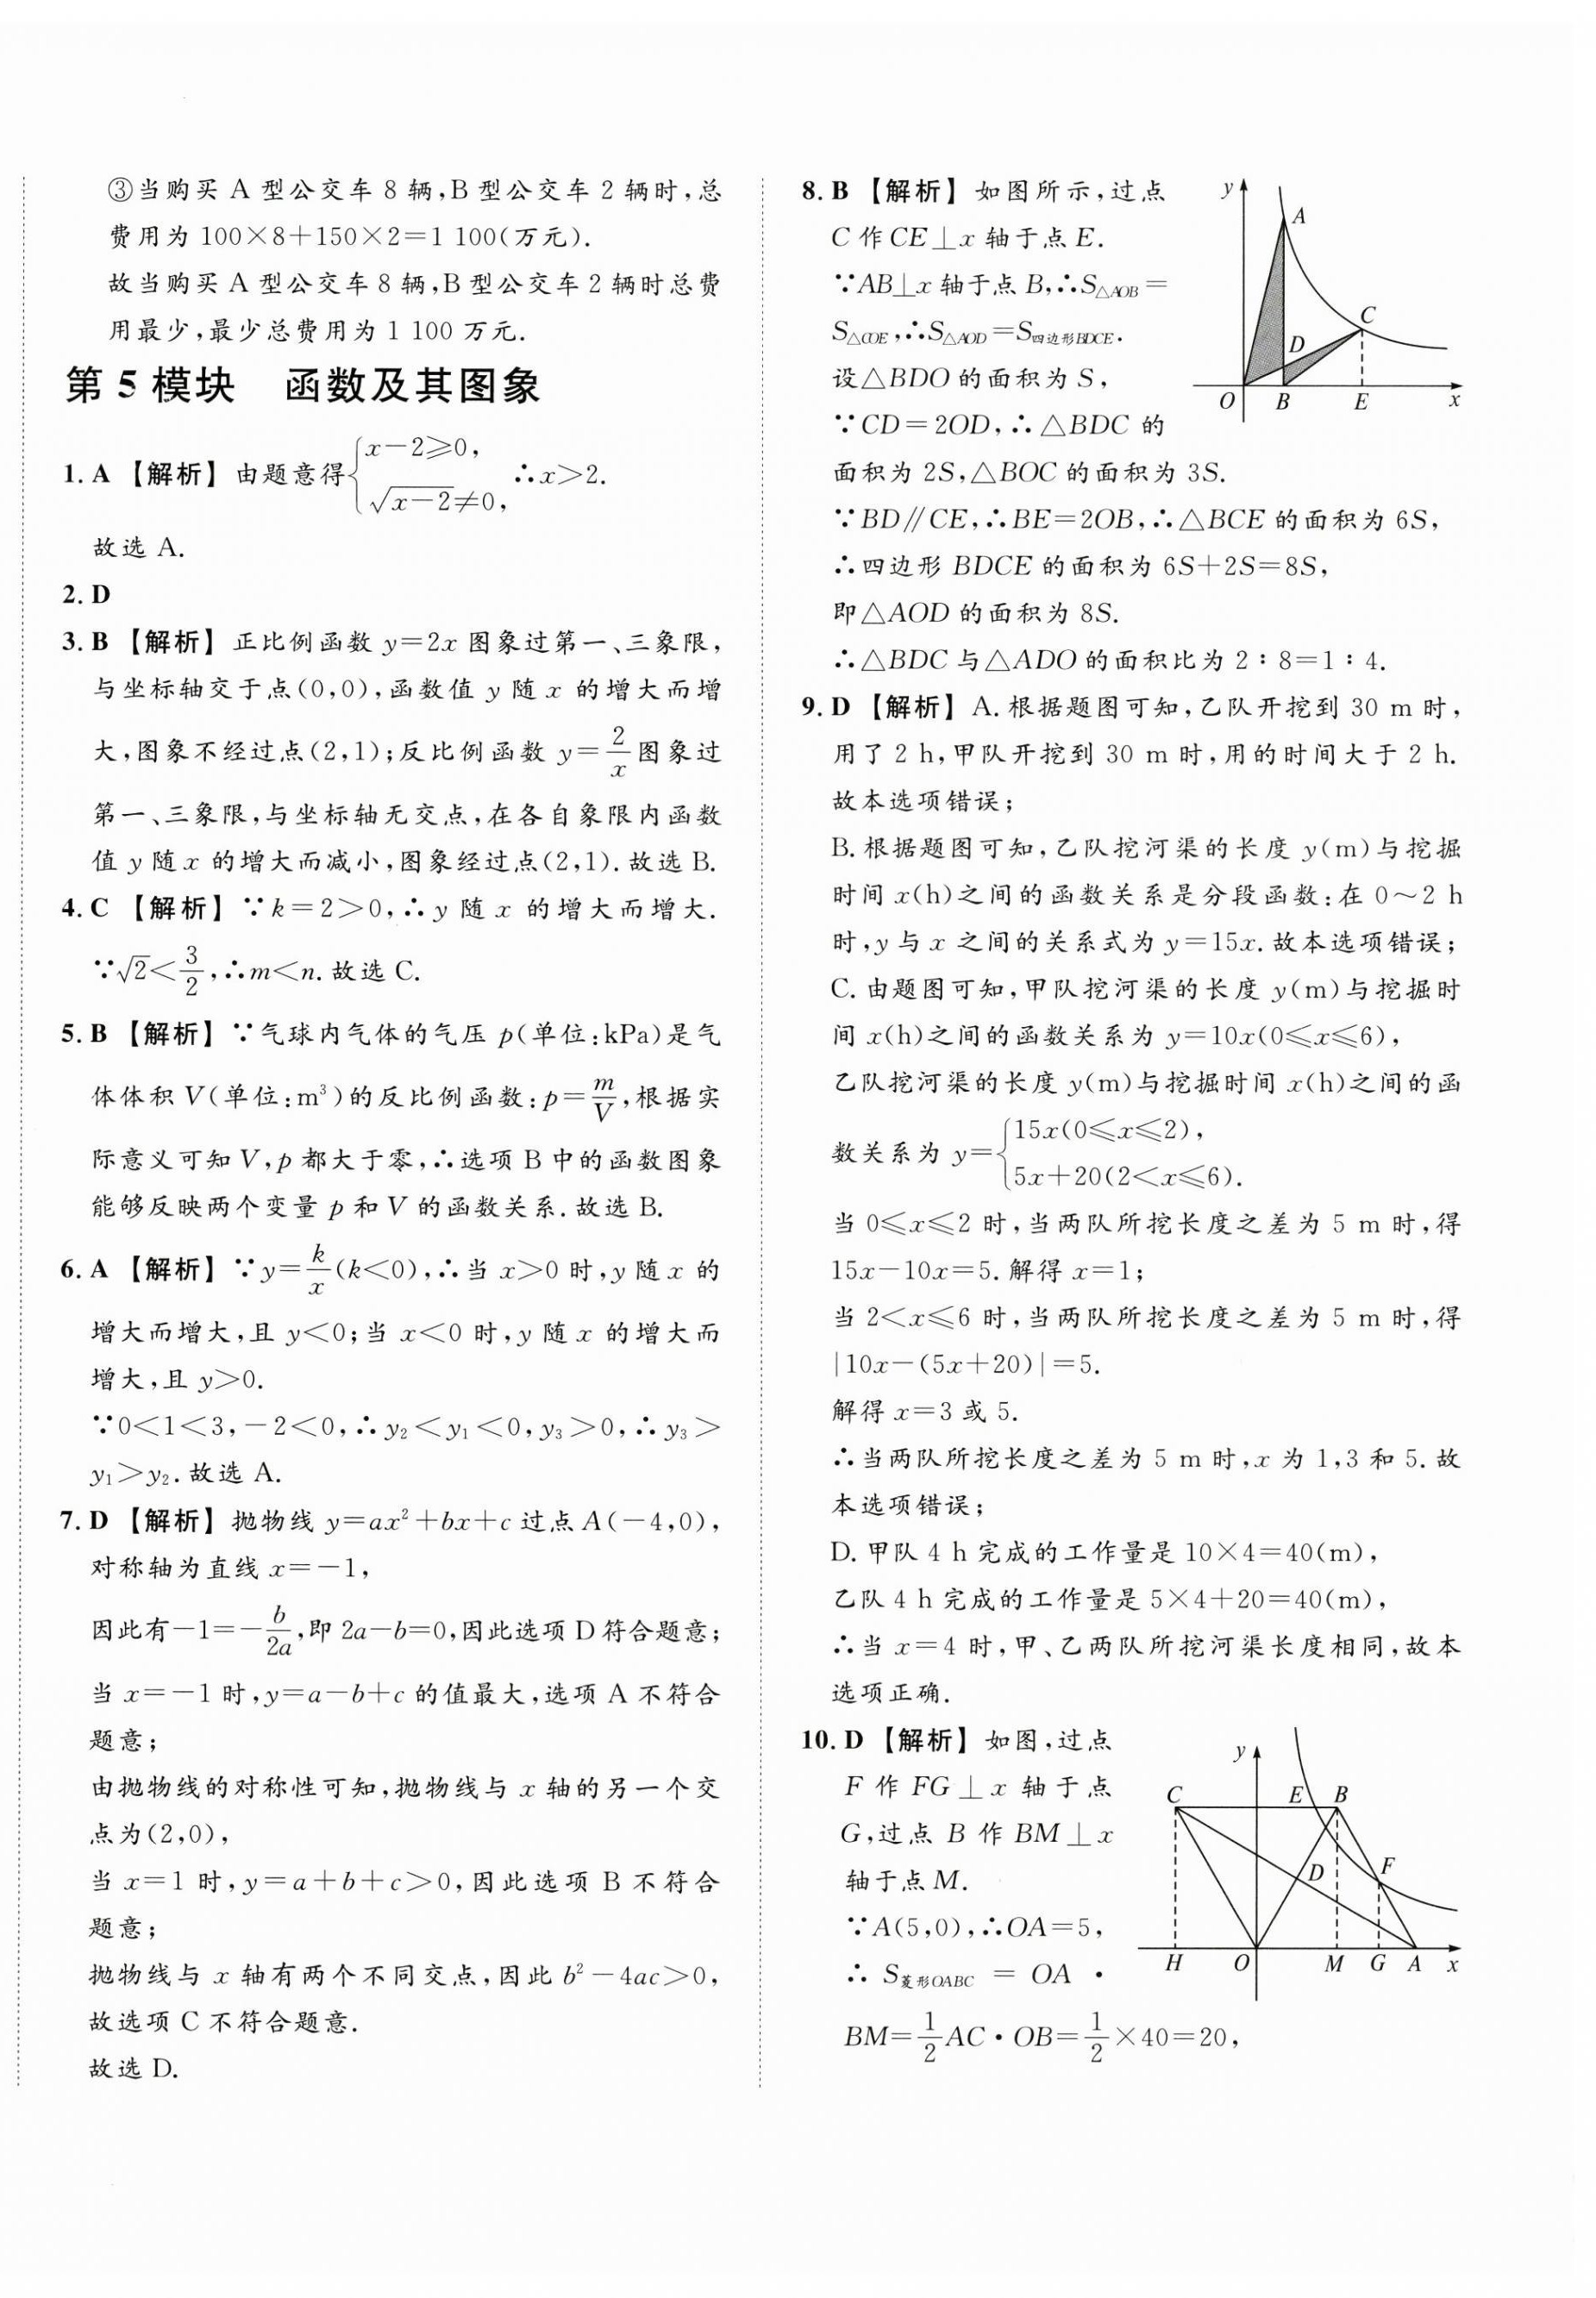 ③当购买 A 型公交车 8 辆,B 型公交车 2 辆时,总
费用为 100×8+150×2=1 100(万元).
故当购买 A 型公交车 8 辆,B 型公交车 2 辆时总费
用最少,最少总费用为 1 100 万元.
第 5 模块 函数及其图象
1. A 【解析】由题意得{x-2≥0, √(x-2)≠0, ∴x>2.
故选 A.
2. D
3. B 【解析】正比例函数 y=2x 图象过第一、三象限,
与坐标轴交于点(0,0),函数值 y 随 x 的增大而增
大,图象不经过点(2,1);反比例函数 y=2/x 图象过
第一、三象限,与坐标轴无交点,在各自象限内函数
值 y 随 x 的增大而减小,图象经过点(2,1).故选 B.
4. C 【解析】∵k=2>0,∴y 随 x 的增大而增大.
∵√2<3/2,∴m<n.故选 C.
5. B 【解析】∵气球内气体的气压 p(单位:kPa)是气
体体积 V(单位:m³)的反比例函数:p=m/V,根据实
际意义可知 V,p 都大于零,∴选项 B 中的函数图象
能够反映两个变量 p 和 V 的函数关系.故选 B.
6. A 【解析】∵y=k/x(k<0),∴当 x>0 时,y 随 x 的
增大而增大,且 y<0;当 x<0 时,y 随 x 的增大而
增大,且 y>0.
∵0<1<3,-2<0,∴y₂<y₁<0,y₃>0,∴y₃>
y₁>y₂.故选 A.
7. D 【解析】抛物线 y=ax²+bx+c 过点 A(-4,0),
对称轴为直线 x=-1,
因此有-1=-b/2a,即 2a-b=0,因此选项 D 符合题意;
当 x=-1 时,y=a-b+c 的值最大,选项 A 不符合
题意;
由抛物线的对称性可知,抛物线与 x 轴的另一个交
点为(2,0),
当 x=1 时,y=a+b+c>0,因此选项 B 不符合
题意;
抛物线与 x 轴有两个不同交点,因此 b²-4ac>0,
故选项 C 不符合题意.
故选 D.
8. B 【解析】如图所示,过点
C 作 CE⊥x 轴于点 E.
∵AB⊥x 轴于点 B,∴S△AOB=
S△COE,∴S△AOD=S四边形BDCE.
设△BDO 的面积为 S,
∵CD=2OD,∴△BDC 的
y
A
C
D
O
B
E
x
面积为 2S,△BOC 的面积为 3S.
∵BD∥CE,∴BE=2OB,∴△BCE 的面积为 6S,
∴四边形 BDCE 的面积为 6S+2S=8S,
即△AOD 的面积为 8S.
∴△BDC 与△ADO 的面积比为 2∶8=1∶4.
9. D 【解析】A. 根据题图可知,乙队开挖到 30 m 时,
用了 2 h,甲队开挖到 30 m 时,用的时间大于 2 h.
故本选项错误;
B. 根据题图可知,乙队挖河渠的长度 y(m)与挖掘
时间 x(h)之间的函数关系是分段函数:在 0~2 h
时,y 与 x 之间的关系式为 y=15x.故本选项错误;
C. 由题图可知,甲队挖河渠的长度 y(m)与挖掘时
间 x(h)之间的函数关系为 y=10x(0≤x≤6),
乙队挖河渠的长度 y(m)与挖掘时间 x(h)之间的函
数关系为 y={15x(0≤x≤2), 5x+20(2<x≤6).
当 0≤x≤2 时,当两队所挖长度之差为 5 m 时,得
15x-10x=5.解得 x=1;
当 2<x≤6 时,当两队所挖长度之差为 5 m 时,得
|10x-(5x+20)|=5.
解得 x=3 或 5.
∴当两队所挖长度之差为 5 m 时,x 为 1,3 和 5.故
本选项错误;
D. 甲队 4 h 完成的工作量是 10×4=40(m),
乙队 4 h 完成的工作量是 5×4+20=40(m),
∴当 x=4 时,甲、乙两队所挖河渠长度相同,故本
选项正确.
10. D 【解析】如图,过点
F 作 FG⊥x 轴于点
G,过点 B 作 BM⊥x
轴于点 M.
∵A(5,0),∴OA=5,
∴ S菱形OABC = OA ·
y
C
E
B
D
F
H
O
M
G
A
x
BM=1/2AC·OB=1/2×40=20,